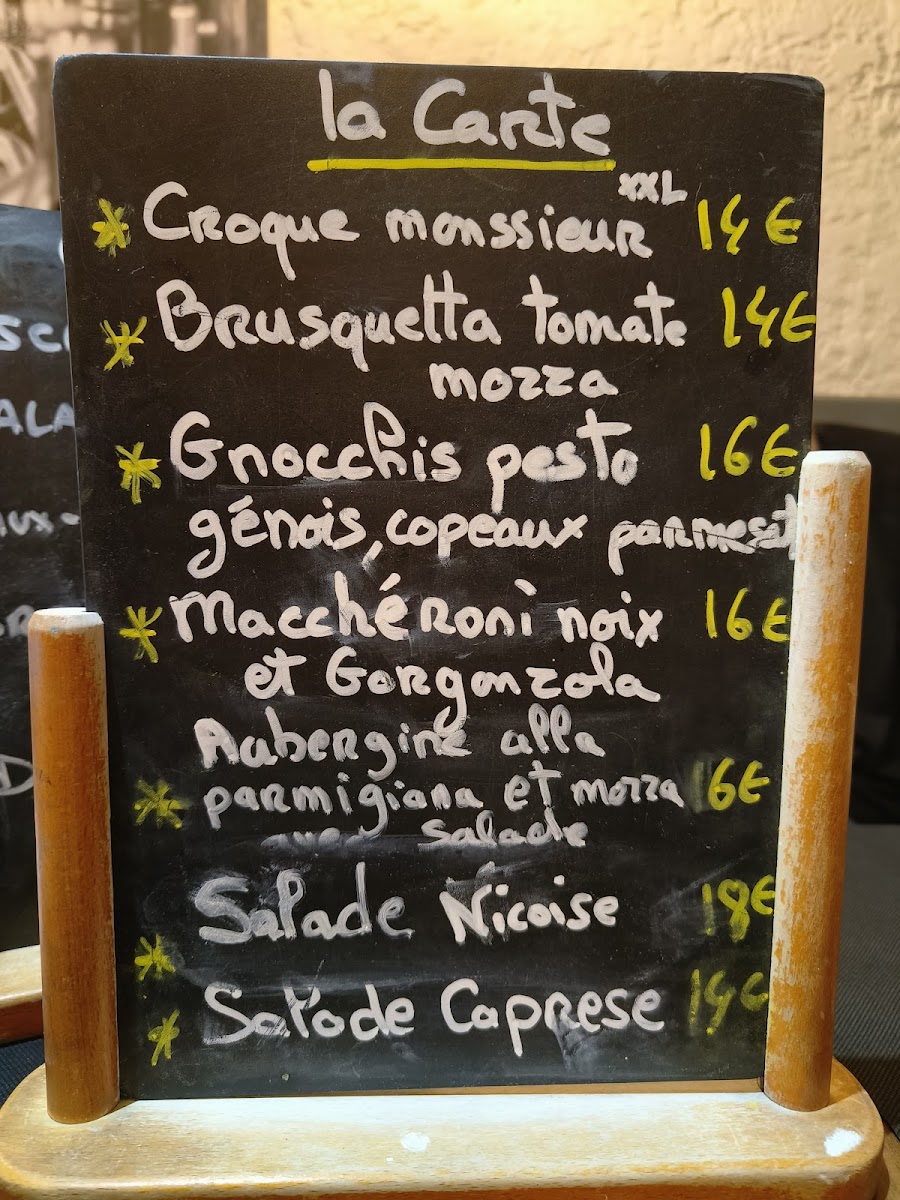 la Carte
* Croque monssieur XXL 14€
* Brusquetta tomate 14€
mozza
* Gnocchis pesto 16€
génois, copeaux parmesan
* Macchéroni noix 16€
et Gorgonzola
Aubergine alla
* parmigiana et mozza 16€
avec salade
Salade Nicoise 18€
*
* Salade Caprese 14€
ALA